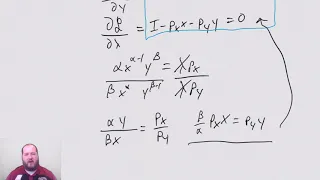 ∂y
∂ℒ/∂λ = I - Pₓx - P_y y = 0
αx^(α-1) y^β / βx^α y^(β-1) = λPₓ / λP_y
αy / βx = Pₓ / P_y    β/α Pₓx = P_y y